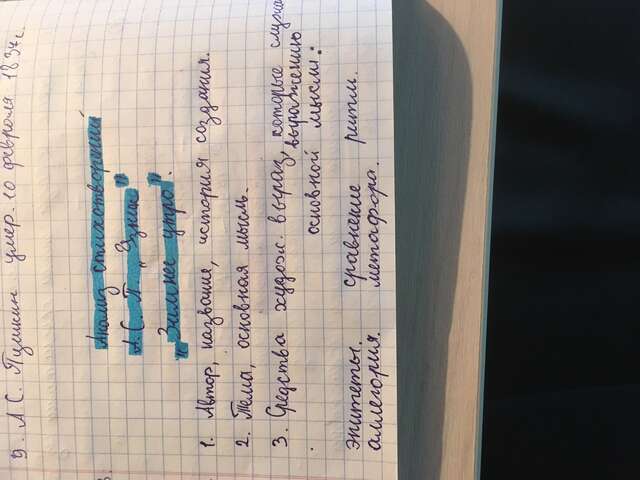 9. А С. Пушкин умер. 10 февраля 1837г.
Анализ стихотворений
А. С. П. „Узник"
„Зимнее утро".
1. Автор, название, история создания.
2. Тема, основная мысль.
3. Средства худож. выраз, которые служа
выражению
основной мысли:
эпитеты. сравнение ритм.
аллегория. метафора.